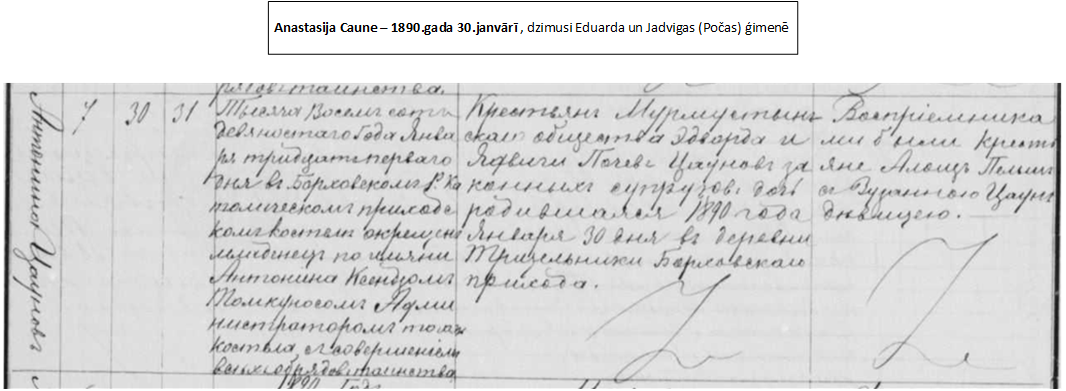 Anastasija Caune – 1890.gada 30.janvārī, dzimusi Eduarda un Jadvigas (Počas) ģimenē
рядовъ таинства.
Антонина Цауновъ
7 30 31
Тысяча Восемь сотъ
девяностаго Года Янва
ря тридцать перваго
дня въ Борховскомъ Р. Ка
толическомъ приходс
комъ костелѣ окрещенъ
младенецъ по имяни
Антонина Ксендзомъ
Адми
нистраторомъ того
костела, съ совершеніемъ
всѣхъ обрядовъ таинства
Крестьянъ Мурмустын
скаго общества Эдварда и
Ядвиги Цауновъ за
конныхъ супруговъ дочь
родившаяся 1890 года
Января 30 дня въ деревни
Борховскаго
прихода.
Воспріемника
ми были кресть
яне
съ Цаунъ
дѣвицею.
1890 Года